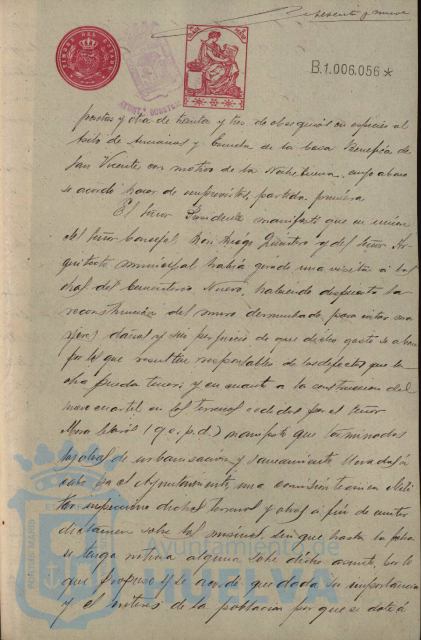 sesenta y nueve
TIMBRE DEL ESTADO
B.1.006.056*
pesetas y otra de treinta y tres, de obsequios en especies al
Asilo de Ancianos y Escuela de la Casa Benéfica de
San Vicente con motivo de la Noche Buena, cuyo abono
se acordó hacer de imprevistos, partida primera
El Señor Presidente manifestó que en unión
del Señor Concejal Don Diego Quintero y del Señor Ar-
quitecto municipal había girado una visita a las
obras del Cementerio Nuevo, habiendo dispuesto la
reconstrucción del muro derrumbado, para evitar ma-
yores daños y sin perjuicio de que dicho gasto se abone
por los que resulten responsables de los defectos que la
obra pueda tener; y en cuanto a la construcción del
nuevo cuartel en los terrenos cedidos por el Señor
Mora Claros (q.e.p.d.) manifestó que terminados
las obras de urbanización y saneamiento llevadas a
cabo por el Ayuntamiento, una comisión técnica Mili-
tar inspeccionó dichos terrenos y obras a fin de emitir
dictamen sobre los mismos, sin que hasta la fecha
se tenga noticia alguna sobre dicho asunto, por lo
que propuso y se acordó que dada su importancia
y el interés de la población por que se dote á
Ayuntamiento de
HUELVA